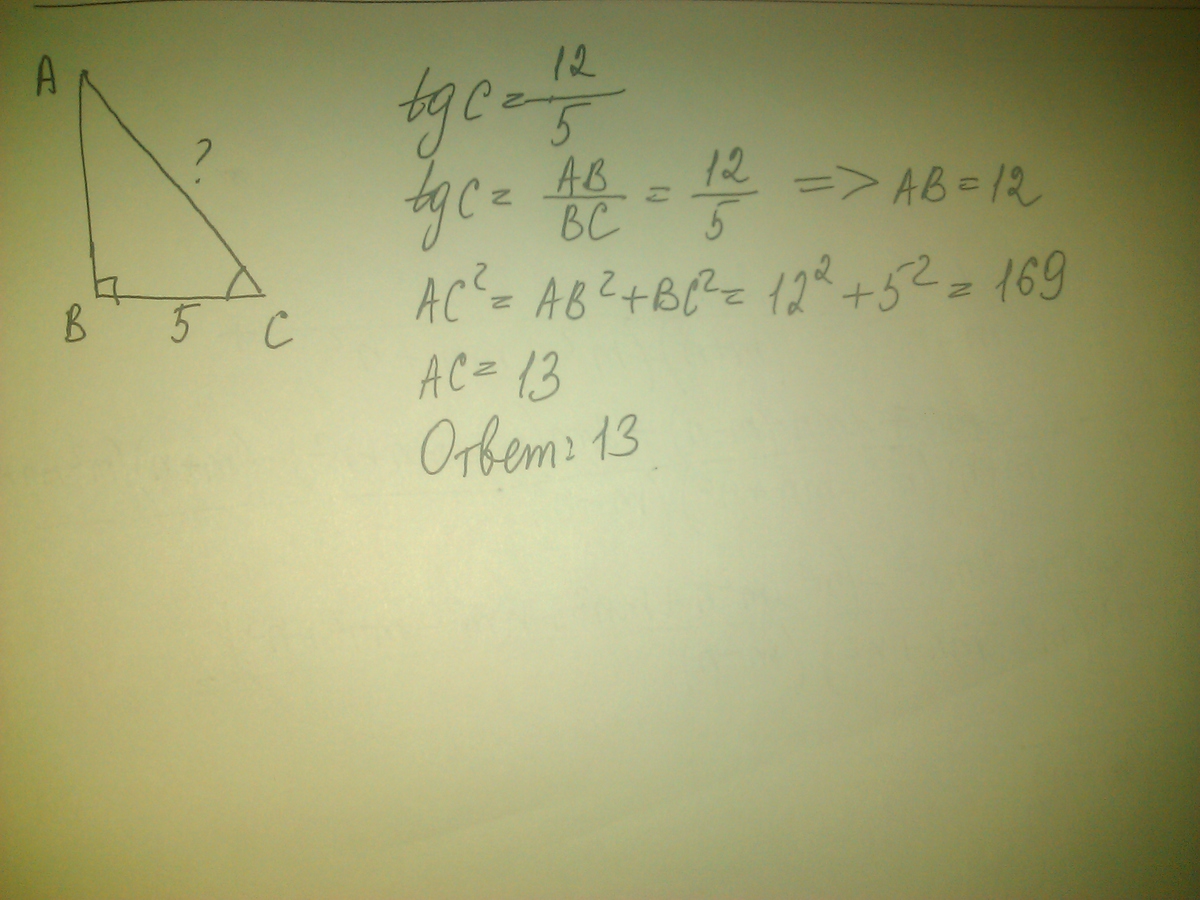 A
?
B 5 C
tg C = 12/5
tg C = AB/BC = 12/5 => AB = 12
AC² = AB² + BC² = 12² + 5² = 169
AC = 13
Ответ: 13